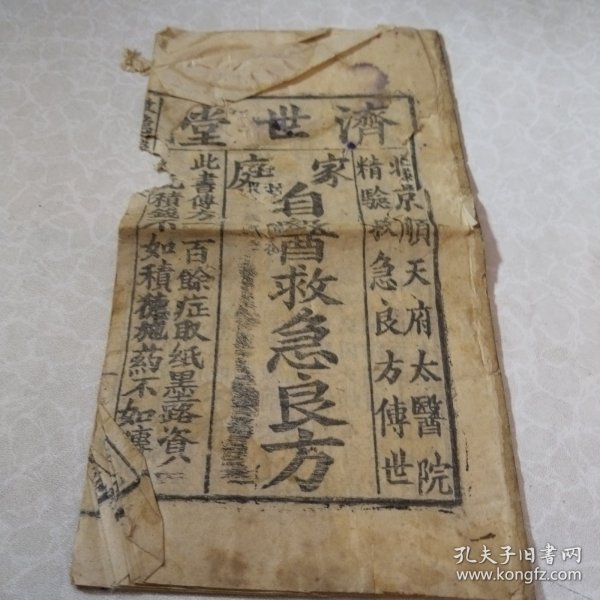 濟世堂
北京順天府太醫院
精驗救急良方傳世
家庭
自醫救急良方
此書傳方一百餘症取紙墨露資八
積錢不如積德施药不如傳
孔夫子旧书网
www.kongfz.com